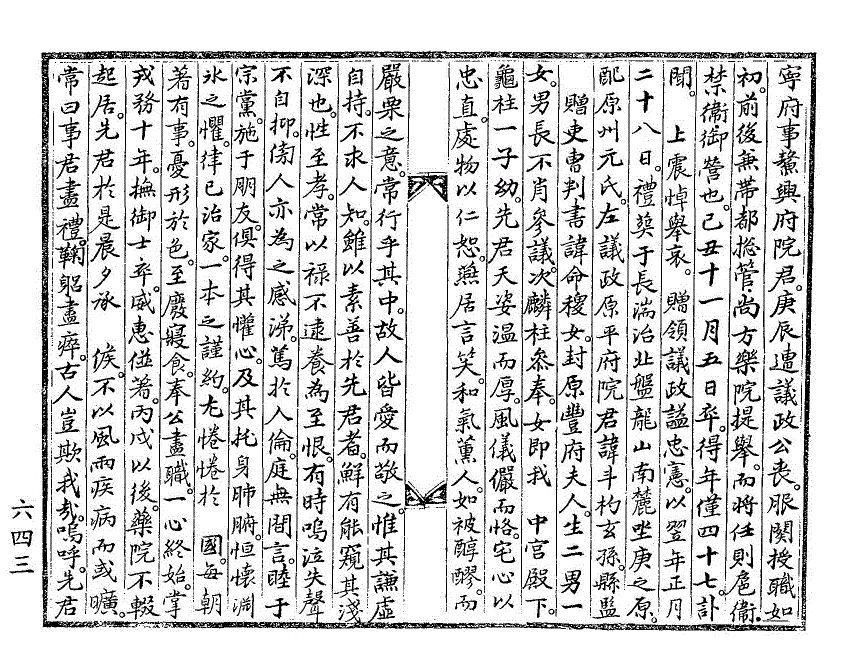 寧府事鰲興府院君。庚辰遭議政公喪。服闋授職如
初。前後兼帶都摠管,尙方藥院提擧。而將任則扈衞,
禁衞御營也。己丑十一月五日卒。得年僅四十七。訃
聞。 上震悼擧哀。贈領議政諡忠憲。以翌年正月
二十八日。禮葬于長湍治北盤龍山南麓坐庚之原。
配原州元氏。左議政原平府院君諱斗杓玄孫。縣監
贈吏曹判書諱命稷女。封原豐府夫人。生二男一
女。男長不肖參議。次麟柱參奉。女卽我 中宮殿下。
龜柱一子幼。先君天姿溫而厚。風儀儼而恪。宅心以
忠直。處物以仁恕。燕居言笑。和氣薰人。如被醇醪。而
嚴栗之意。常行乎其中。故人皆愛而敬之。惟其謙虛
自持。不求人知。雖以素善於先君者。鮮有能窺其淺
深也。性至孝。常以祿不逮養爲至恨。有時嗚泣失聲
不自抑。傍人亦爲之感涕。篤於人倫。庭無閒言。睦于
宗黨。施于朋友。俱得其懽心。及其托身肺腑。恒懷淵
氷之懼。律己治家。一本之謹約。尤惓惓於 國。每朝
著有事。憂形於色。至廢寢食。奉公盡職。一心終始。掌
戎務十年。撫御士卒。威惠並著。丙戌以後。藥院不輟
起居。先君於是晨夕承 候。不以風雨疾病而或曠。
常曰事君盡禮。鞠躬盡瘁。古人豈欺我哉。嗚呼。先君
六四三